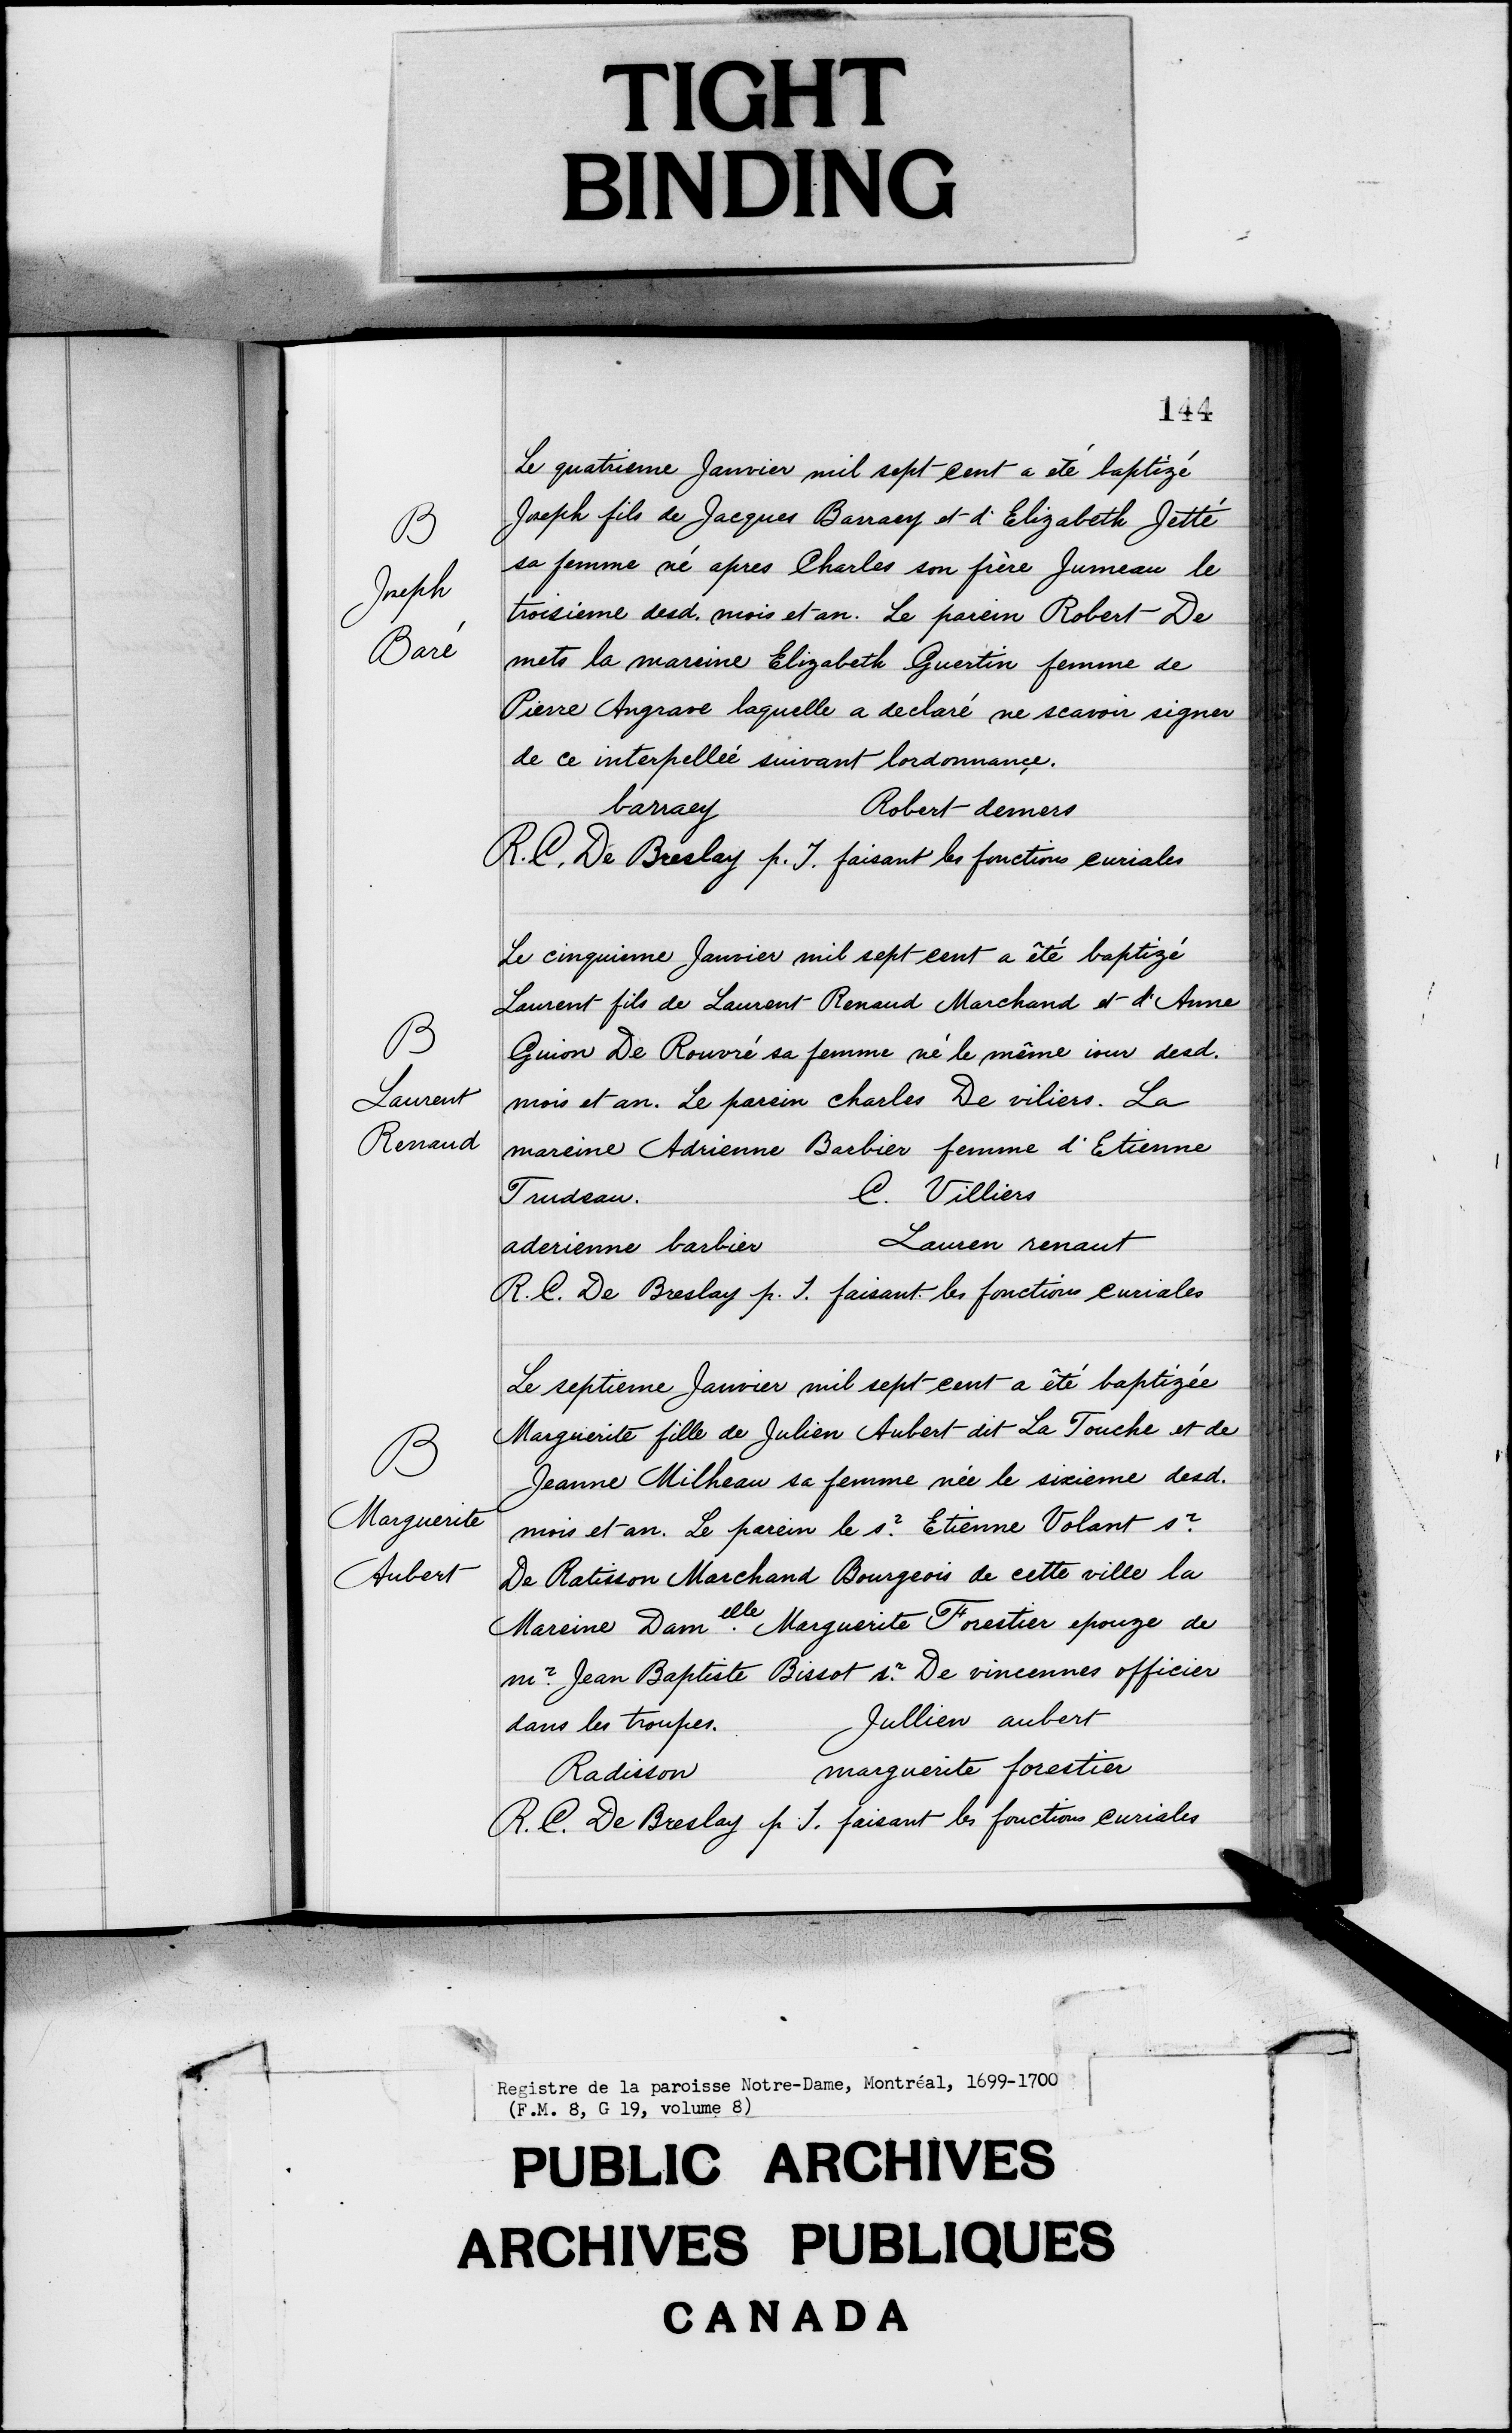 TIGHT
BINDING
144
Le quatrieme Janvier mil sept cent a eté baptizé
B
Joseph fils de Jacques Barraey et d'Elizabeth Jetté
sa femme né apres Charles son frère Jumeau le
Joseph
troisieme desd. mois et an. Le parein Robert De
Baré
mets la mareine Elizabeth Guertin femme de
Pierre Angrave laquelle a declaré ne scavoir signer
de ce interpelleé suivant lordonnançe.
barraey Robert demers
R. C. De Breslay p. J. faisant les fonctions curiales
Le cinquieme Janvier mil sept cent a êté baptizé
Laurent fils de Laurent Renaud Marchand et d'Anne
B
Guion De Rouvré sa femme né le même iour desd.
Laurent
mois et an. Le parein charles De viliers. La
Renaud
mareine Adrienne Barbier femme d'Etienne
Trudeau. C. Villiers
aderienne barbier Lauren renaut
R. C. De Breslay p. J. faisant les fonctions curiales
Le septieme Janvier mil sept cent a êté baptizée
Marguerite fille de Julien Aubert dit La Touche et de
B
Jeanne Milheau sa femme née le sixieme desd.
Marguerite
mois et an. Le parein le sr. Etienne Volant sr.
Aubert
De Ratisson Marchand Bourgeois de cette ville la
Mareine Damelle. Marguerite Forestier epouze de
mr. Jean Baptiste Bissot sr. De vincennes officier
dans les troupes. Jullien aubert
Radisson marguerite forestier
R. C. De Breslay p J. faisant les fonctions curiales
Registre de la paroisse Notre-Dame, Montréal, 1699-1700
(F.M. 8, G 19, volume 8)
PUBLIC ARCHIVES
ARCHIVES PUBLIQUES
CANADA